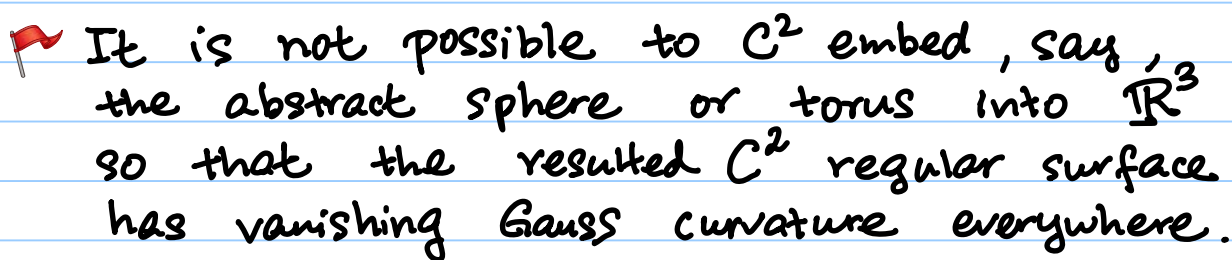 It is not possible to C² embed, say,
the abstract sphere or torus into ℝ³
so that the resulted C² regular surface
has vanishing Gauss curvature everywhere.